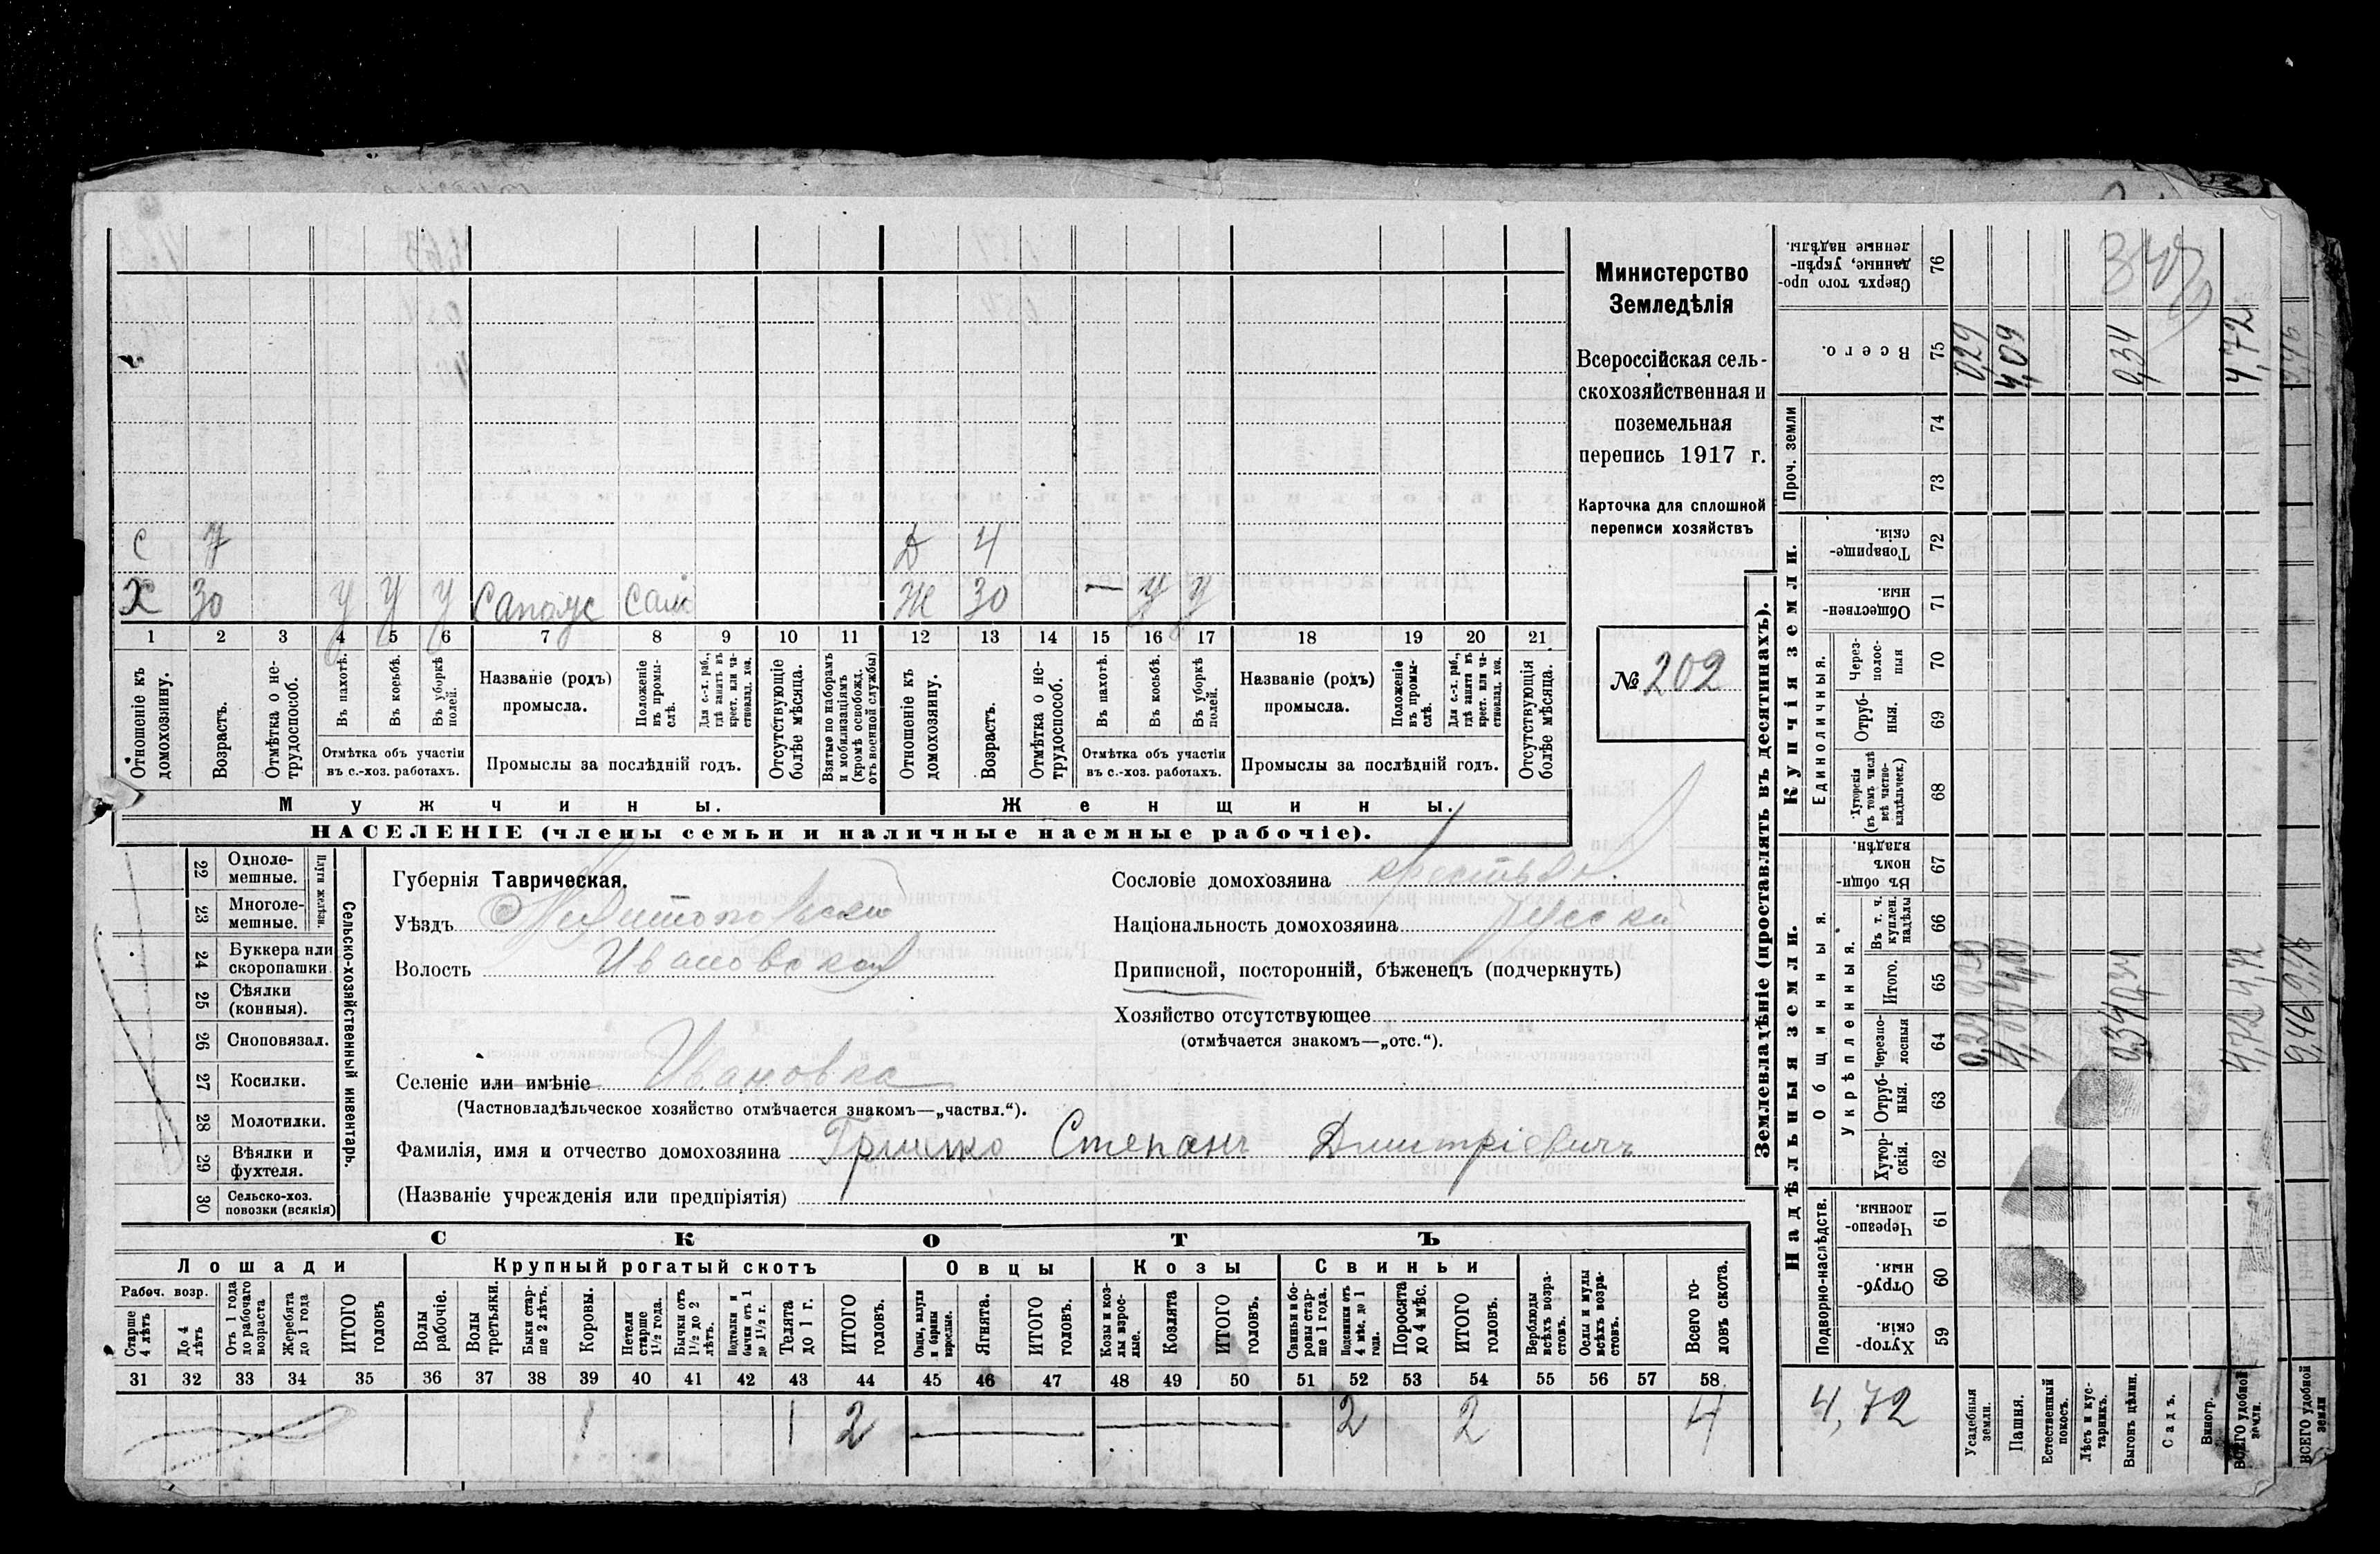 С 7 Д 4
Х 30 У У У Сапожс Сам Ж 30 — У У
1 2 3 4 5 6 7 8 9 10 11 12 13 14 15 16 17 18 19 20 21
Отношеніе къ домохозяину.
Возрастъ.
Отмѣтка о не-
трудоспособ.
Въ пахотѣ.
Въ косьбѣ.
Въ уборкѣ полей.
Отмѣтка объ участіи
въ с.-хоз. работахъ.
Названіе (родъ)
промысла.
Положеніе въ промы-
слѣ.
Для с.-х. раб.,
гдѣ занятъ въ
крест. или ча-
стновлад. хоз.
Промыслы за послѣдній годъ.
Отсутствующіе болѣе мѣсяца.
Взятые по наборамъ
и мобилизаціямъ
(кромѣ освобожд.
отъ военной службы)
Отношеніе къ домохозяину.
Возрастъ.
Отмѣтка о не-
трудоспособ.
Въ пахотѣ.
Въ косьбѣ.
Въ уборкѣ полей.
Отмѣтка объ участіи
въ с.-хоз. работахъ.
Названіе (родъ)
промысла.
Положеніе въ промы-
слѣ.
Для с.-х. раб.,
гдѣ занята въ
крест. или ча-
стновлад. хоз.
Промыслы за послѣдній годъ.
Отсутствующія болѣе мѣсяца.
Мужчины. Женщины.
НАСЕЛЕНІЕ (члены семьи и наличные наемные рабочіе).
Министерство
Земледѣлія
Всероссійская сель-
скохозяйственная и
поземельная
перепись 1917 г.
Карточка для сплошной
переписи хозяйствъ
№ 202
22 Одноле-
мешные.
23 Многоле-
мешные.
Плуги желѣзн.
24 Буккера или
скоропашки
25 Сѣялки
(конныя).
26 Сноповязал.
27 Косилки.
28 Молотилки.
29 Вѣялки и
фухтеля.
30 Сельско-хоз.
повозки (всякія)
Сельско-хозяйственный инвентарь.
Губернія Таврическая.
Уѣздъ Мелитопольскій
Волость Ивановская
Селеніе или имѣніе Ивановка
(Частновладѣльческое хозяйство отмѣчается знакомъ—„частвл.“).
Фамилія, имя и отчество домохозяина Гришко Степанъ Дмитріевичъ
(Названіе учрежденія или предпріятія)
Сословіе домохозяина
Національность домохозяина
Приписной, посторонній, бѣженецъ (подчеркнуть)
Хозяйство отсутствующее
(отмѣчается знакомъ—„отс.“).
СКОТЪ
Лошади Крупный рогатый скотъ Овцы Козы Свиньи
Рабоч. возр.
Старше 4 лѣтъ
До 4 лѣтъ
Отъ 1 года
до рабочаго
возраста
Жеребята до 1 года
ИТОГО головъ
Волы рабочіе.
Волы третьяки.
Быки стар-
ше 2 лѣтъ.
Коровы.
Нетели старше 1½ года.
Бычки отъ 1½ до 2 лѣтъ.
Подтелки и бычки отъ 1 до 1½ г.
Телята до 1 г.
ИТОГО головъ.
Овцы, валухи и бараны взрослые.
Ягнята.
ИТОГО головъ.
Козы и коз-
лы взрос-
лые.
Козлята
ИТОГО головъ.
Свиньи и бо-
ровы стар-
ше 1 года.
Подсвинки отъ 4 мѣс. до 1 года.
Поросята до 4 мѣс.
ИТОГО головъ.
Верблюды
всѣхъ возра-
стовъ.
Ослы и мулы
всѣхъ возра-
стовъ.
Всего го-
ловъ скота.
31 32 33 34 35 36 37 38 39 40 41 42 43 44 45 46 47 48 49 50 51 52 53 54 55 56 57 58
1 1 2 — — 2 2 4
Землевладѣніе (проставлять въ десятинахъ).
Надѣльныя земли. Купчія земли. Проч. земли
Подворно-наслѣдств.
Общинныя.
Укрѣпленныя.
Единоличныя.
59 Хутор-
скія.
60 Отруб-
ныя.
61 Черезпо-
лосныя.
62 Хутор-
скія.
63 Отруб-
ныя.
64 Черезпо-
лосныя
65 Итого.
66 Въ т. ч. куплен. надѣлы
67 Въ общи-
номъ владѣн.
68 Хуторскія
(въ томъ числѣ
всѣ частно-
владѣльческ.)
69 Отруб-
ныя.
70 Через-
полос-
ныя
71 Обществен-
ныя.
72 Товарище-
скія.
73
74
75 Всего.
76 Сверхъ того про-
данные, укрѣп-
ленные надѣлы.
4,72
Усадебныя земли. 0,29 0,29 0,29
Пашня. 4,09 4,09 4,09
Естественный покосъ.
Лѣсъ и кус-
тарникъ.
Выгонъ цѣлин. 0,34 0,34 0,34
Садъ.
Виногр.
ВСЕГО удобной земли. 4,72 4,72 4,72
ВСЕГО удобной земли